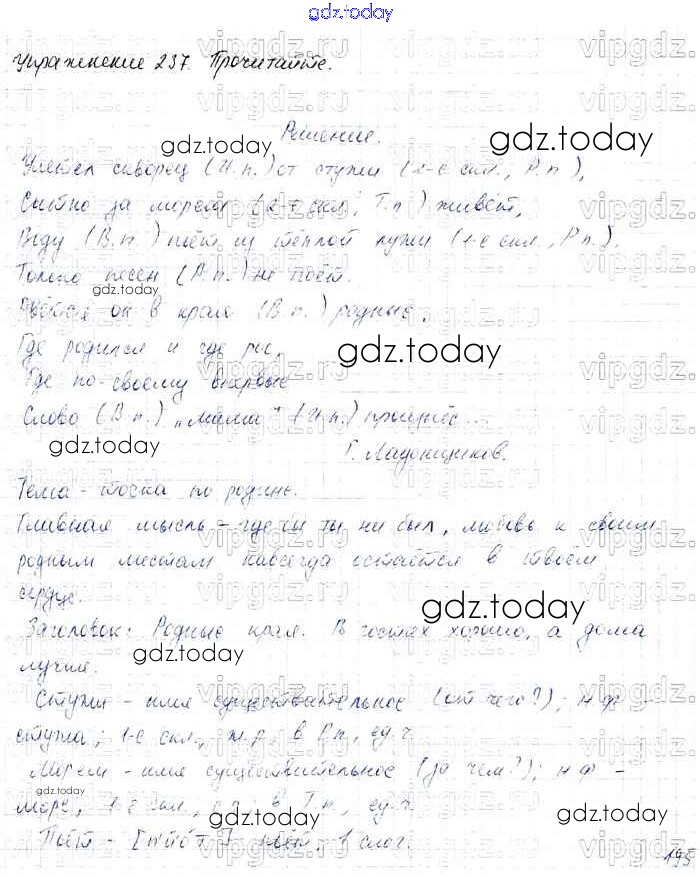 gdz.today
Упражнение 237. Прочитайте.
Решение.
Улетел скворец (И.п.) от стужи (1-е скл., Р.п),
Сытно за морем (2-е скл., Т.п) живёт,
Воду (В.п.) пьёт из тёплой лужи (1-е скл., Р.п.),
Только песен (Р.п.) не поёт.
он в края (В.п.) родные,
Где родился и где рос,
Где по-своему впервые
Слово (В.п.) „мама" (И.п.) произнёс...
Г. Ладонщиков.
Тема - тоска по родине.
Главная мысль - где бы ты ни был, любовь к своим
родным местам навсегда остаётся в твоём
сердце.
Заголовок: Родные края. В гостях хорошо, а дома
лучше.
Стужи - имя существительное (от чего?); н.ф -
стужа; 1-е скл., ж.р., в Р.п., ед.ч.
Морем - имя существительное (за чем?); н.ф -
море, скл., в Т.п., ед.ч.
Пьёт - 1 слог.
195